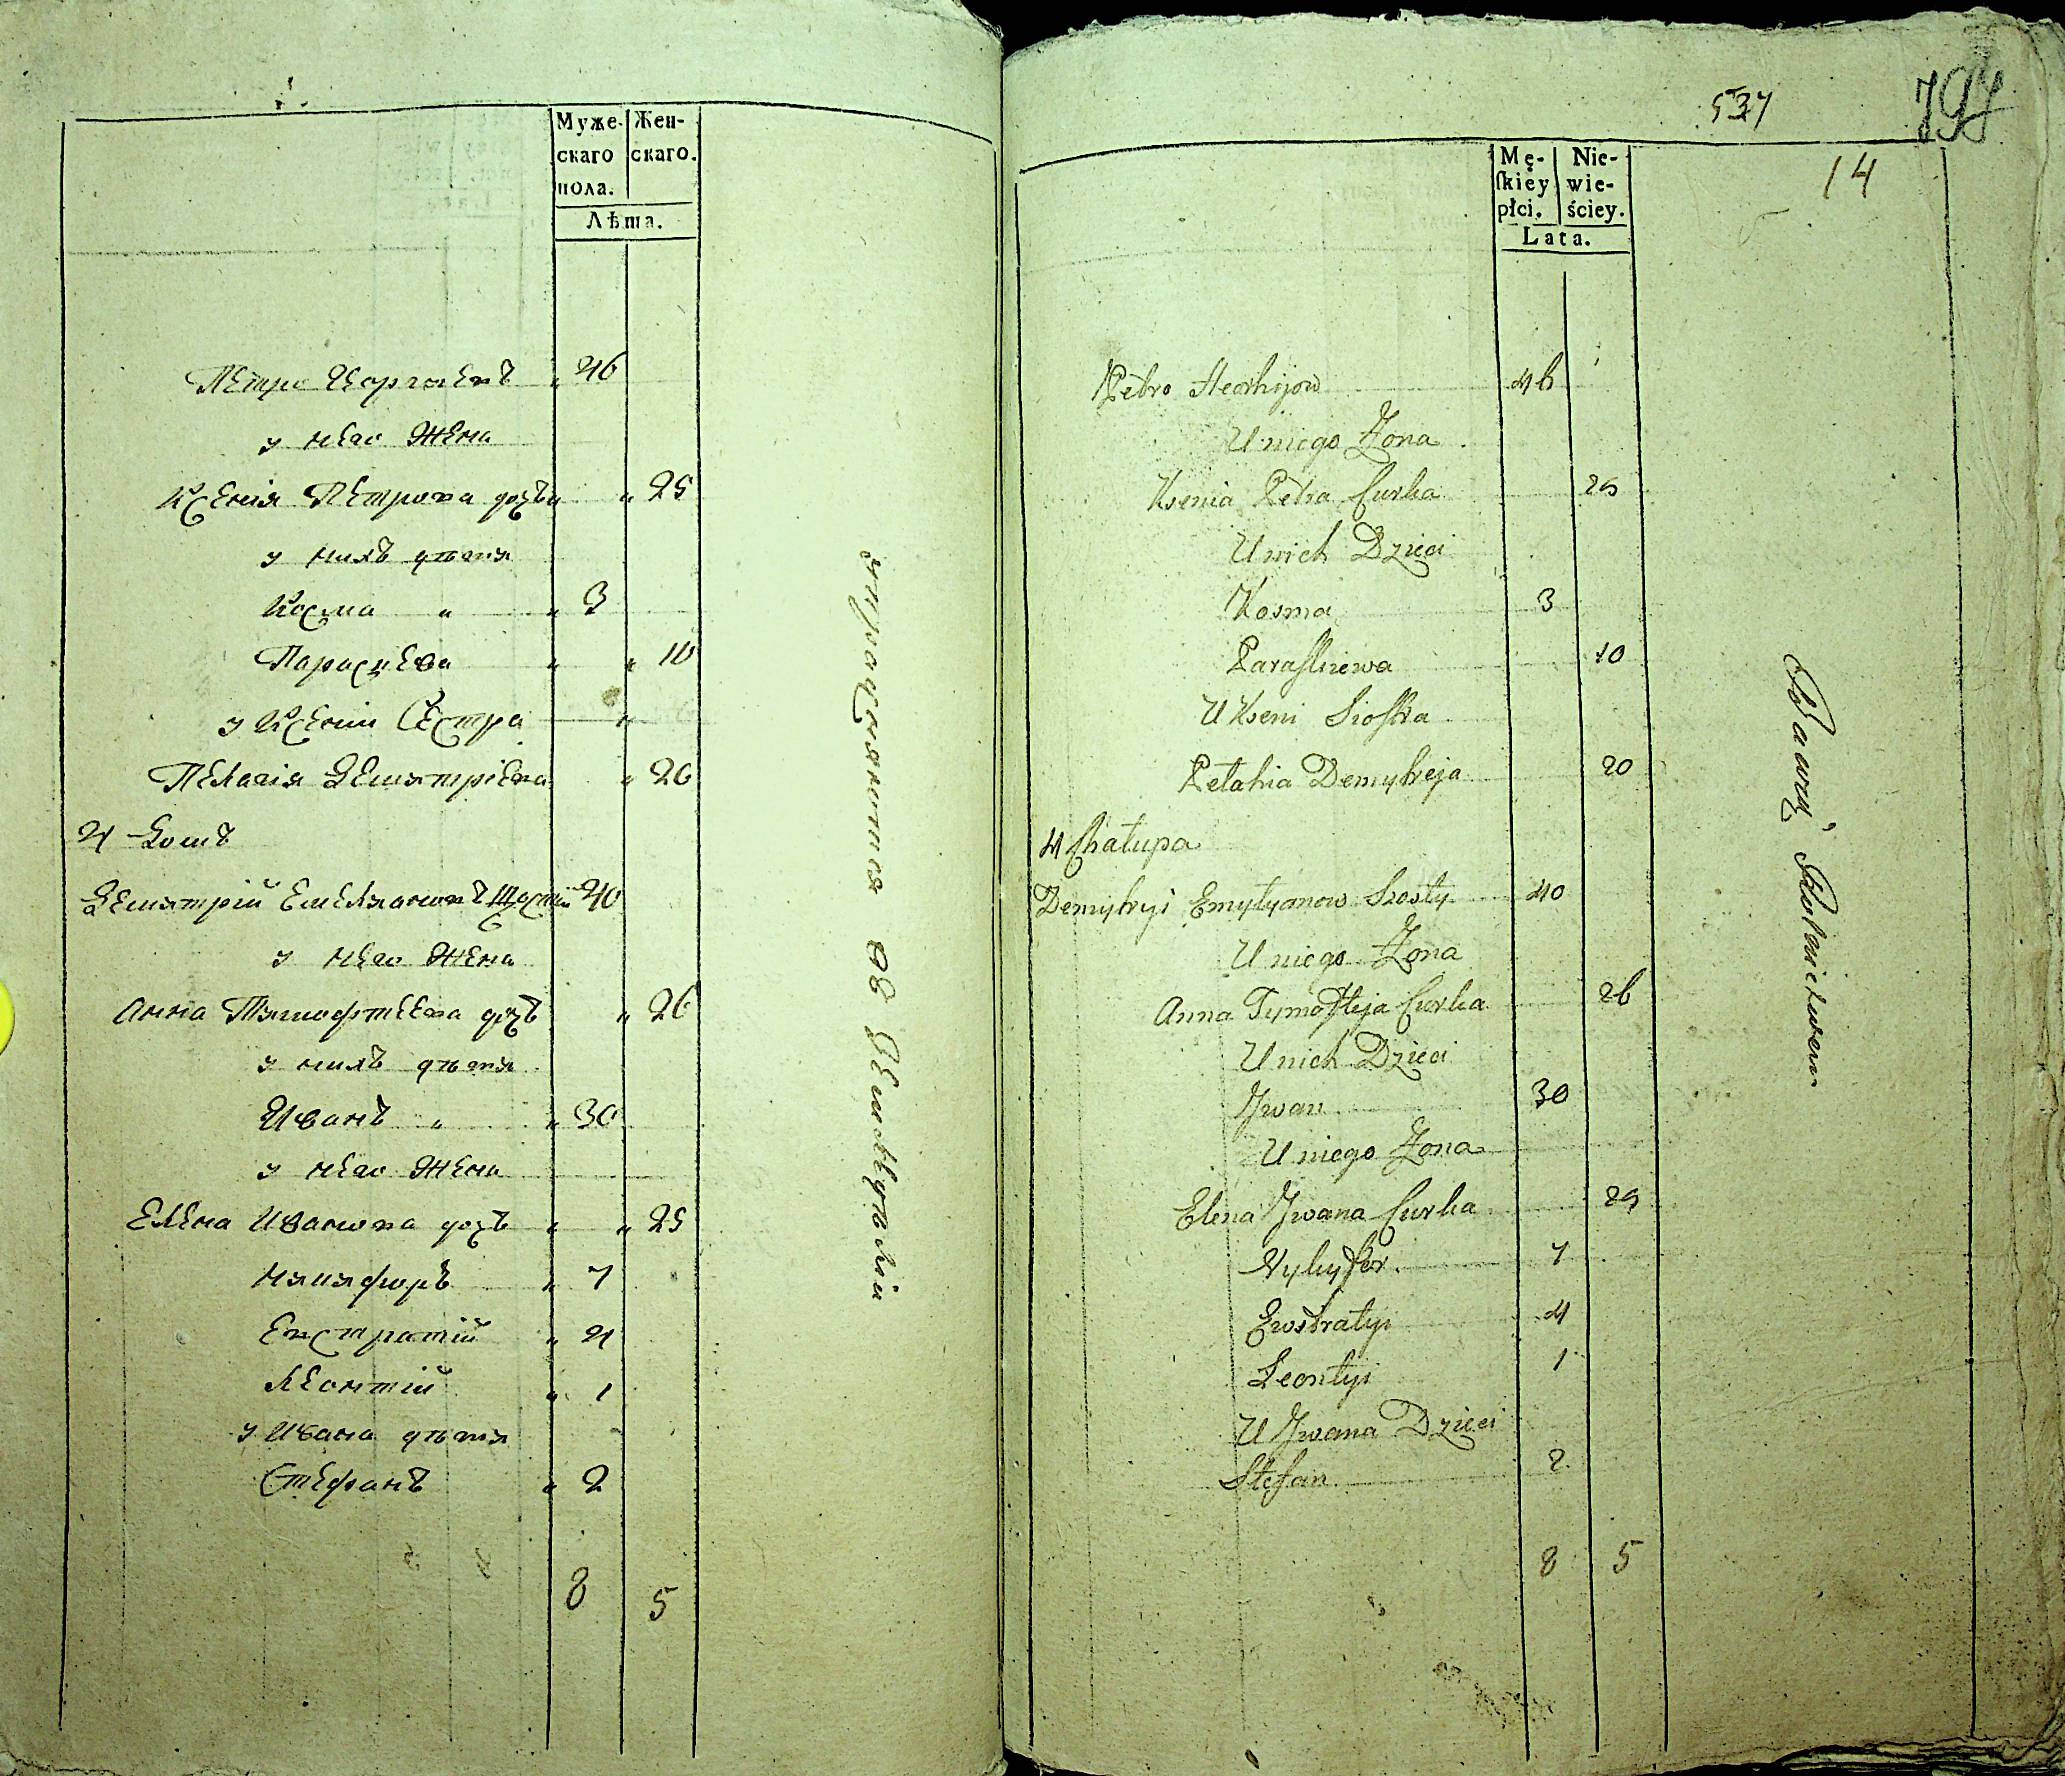 Муже- Жен-
скаго скаго.
пола.
Лѣта.
Петро Георгіевъ 46
у него жена
Ксенія Петрова дочь 25
у нихъ дѣти
Косма 3
Параскева 10
у Ксеніи Сестра
Пелагія Демитріева 20
4 Домъ
Демитрій Емеляновъ Шостый 40
у него жена
Анна Тимофѣева дочь 26
у нихъ дѣти
Иванъ 30
у него жена
Елена Иванова дочь 25
Никифоръ 7
Евстратій 4
Леонтій 1
у Ивана дѣти
Стефанъ 2
8 5
537
797
14
Mę- Nie-
ſkiey wie-
płci. ściey.
Lata.
Petro Heorhijow 46
U niego Żona
Ksenia Petra Curka 25
U nich Dzieci
Kosma 3
Paraskiewa 10
U Kseni Siostra
Pelahia Demytreja 20
4 Chałupa
Demytryi Emylyanow Szosty 40
U niego Żona
Anna Tymofteja Curka 26
U nich Dzieci
Jwan 30
U niego Żona
Elena Jwana Curka 25
Nykyfor 7
Ewstratyi 4
Leontyi 1
U Jwana Dzieci
Stefan 2
8 5